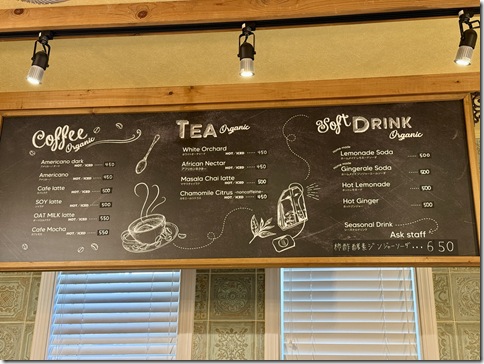 Coffee
Organic
Americano dark
HOT / ICED ---- 450
Americano
HOT / ICED ---- 450
Cafe latte
HOT / ICED ---- 500
SOY latte
HOT / ICED ---- 500
OAT MILK latte
HOT / ICED ---- 550
Cafe Mocha
HOT / ICED ---- 550
TEA Organic
White Orchard
HOT / ICED ---- 450
African Nectar
HOT / ICED ---- 450
Masala Chai latte
HOT / ICED ---- 500
Chamomile Citrus -noncaffeine-
HOT ---- 450
Soft DRINK
Organic
Lemonade Soda
---- 500
Gingerale Soda
---- 500
Hot Lemonade
---- 500
Hot Ginger
---- 500
Seasonal Drink
Ask staff
ジンジャーソーダ...650